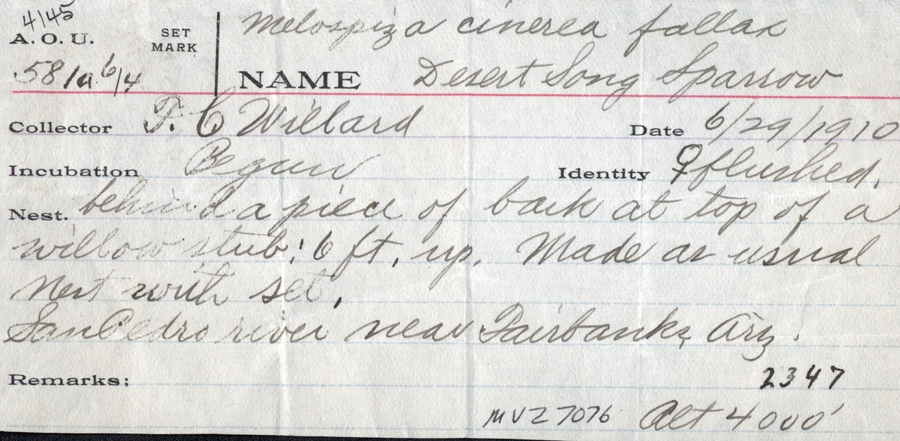 4/45
A. O. U. SET MARK Melospiza cinerea fallax
581a 6/4 NAME Desert Song Sparrow
Collector F. C. Willard Date 6/29/1910
Incubation Begun Identity ♀ flushed.
Nest. behind a piece of bark at top of a
willow stub; 6 ft. up. Made as usual
Nest with set.
San Pedro river near Fairbank, Ariz.
Remarks: 2347
MVZ 7076 Alt 4000'